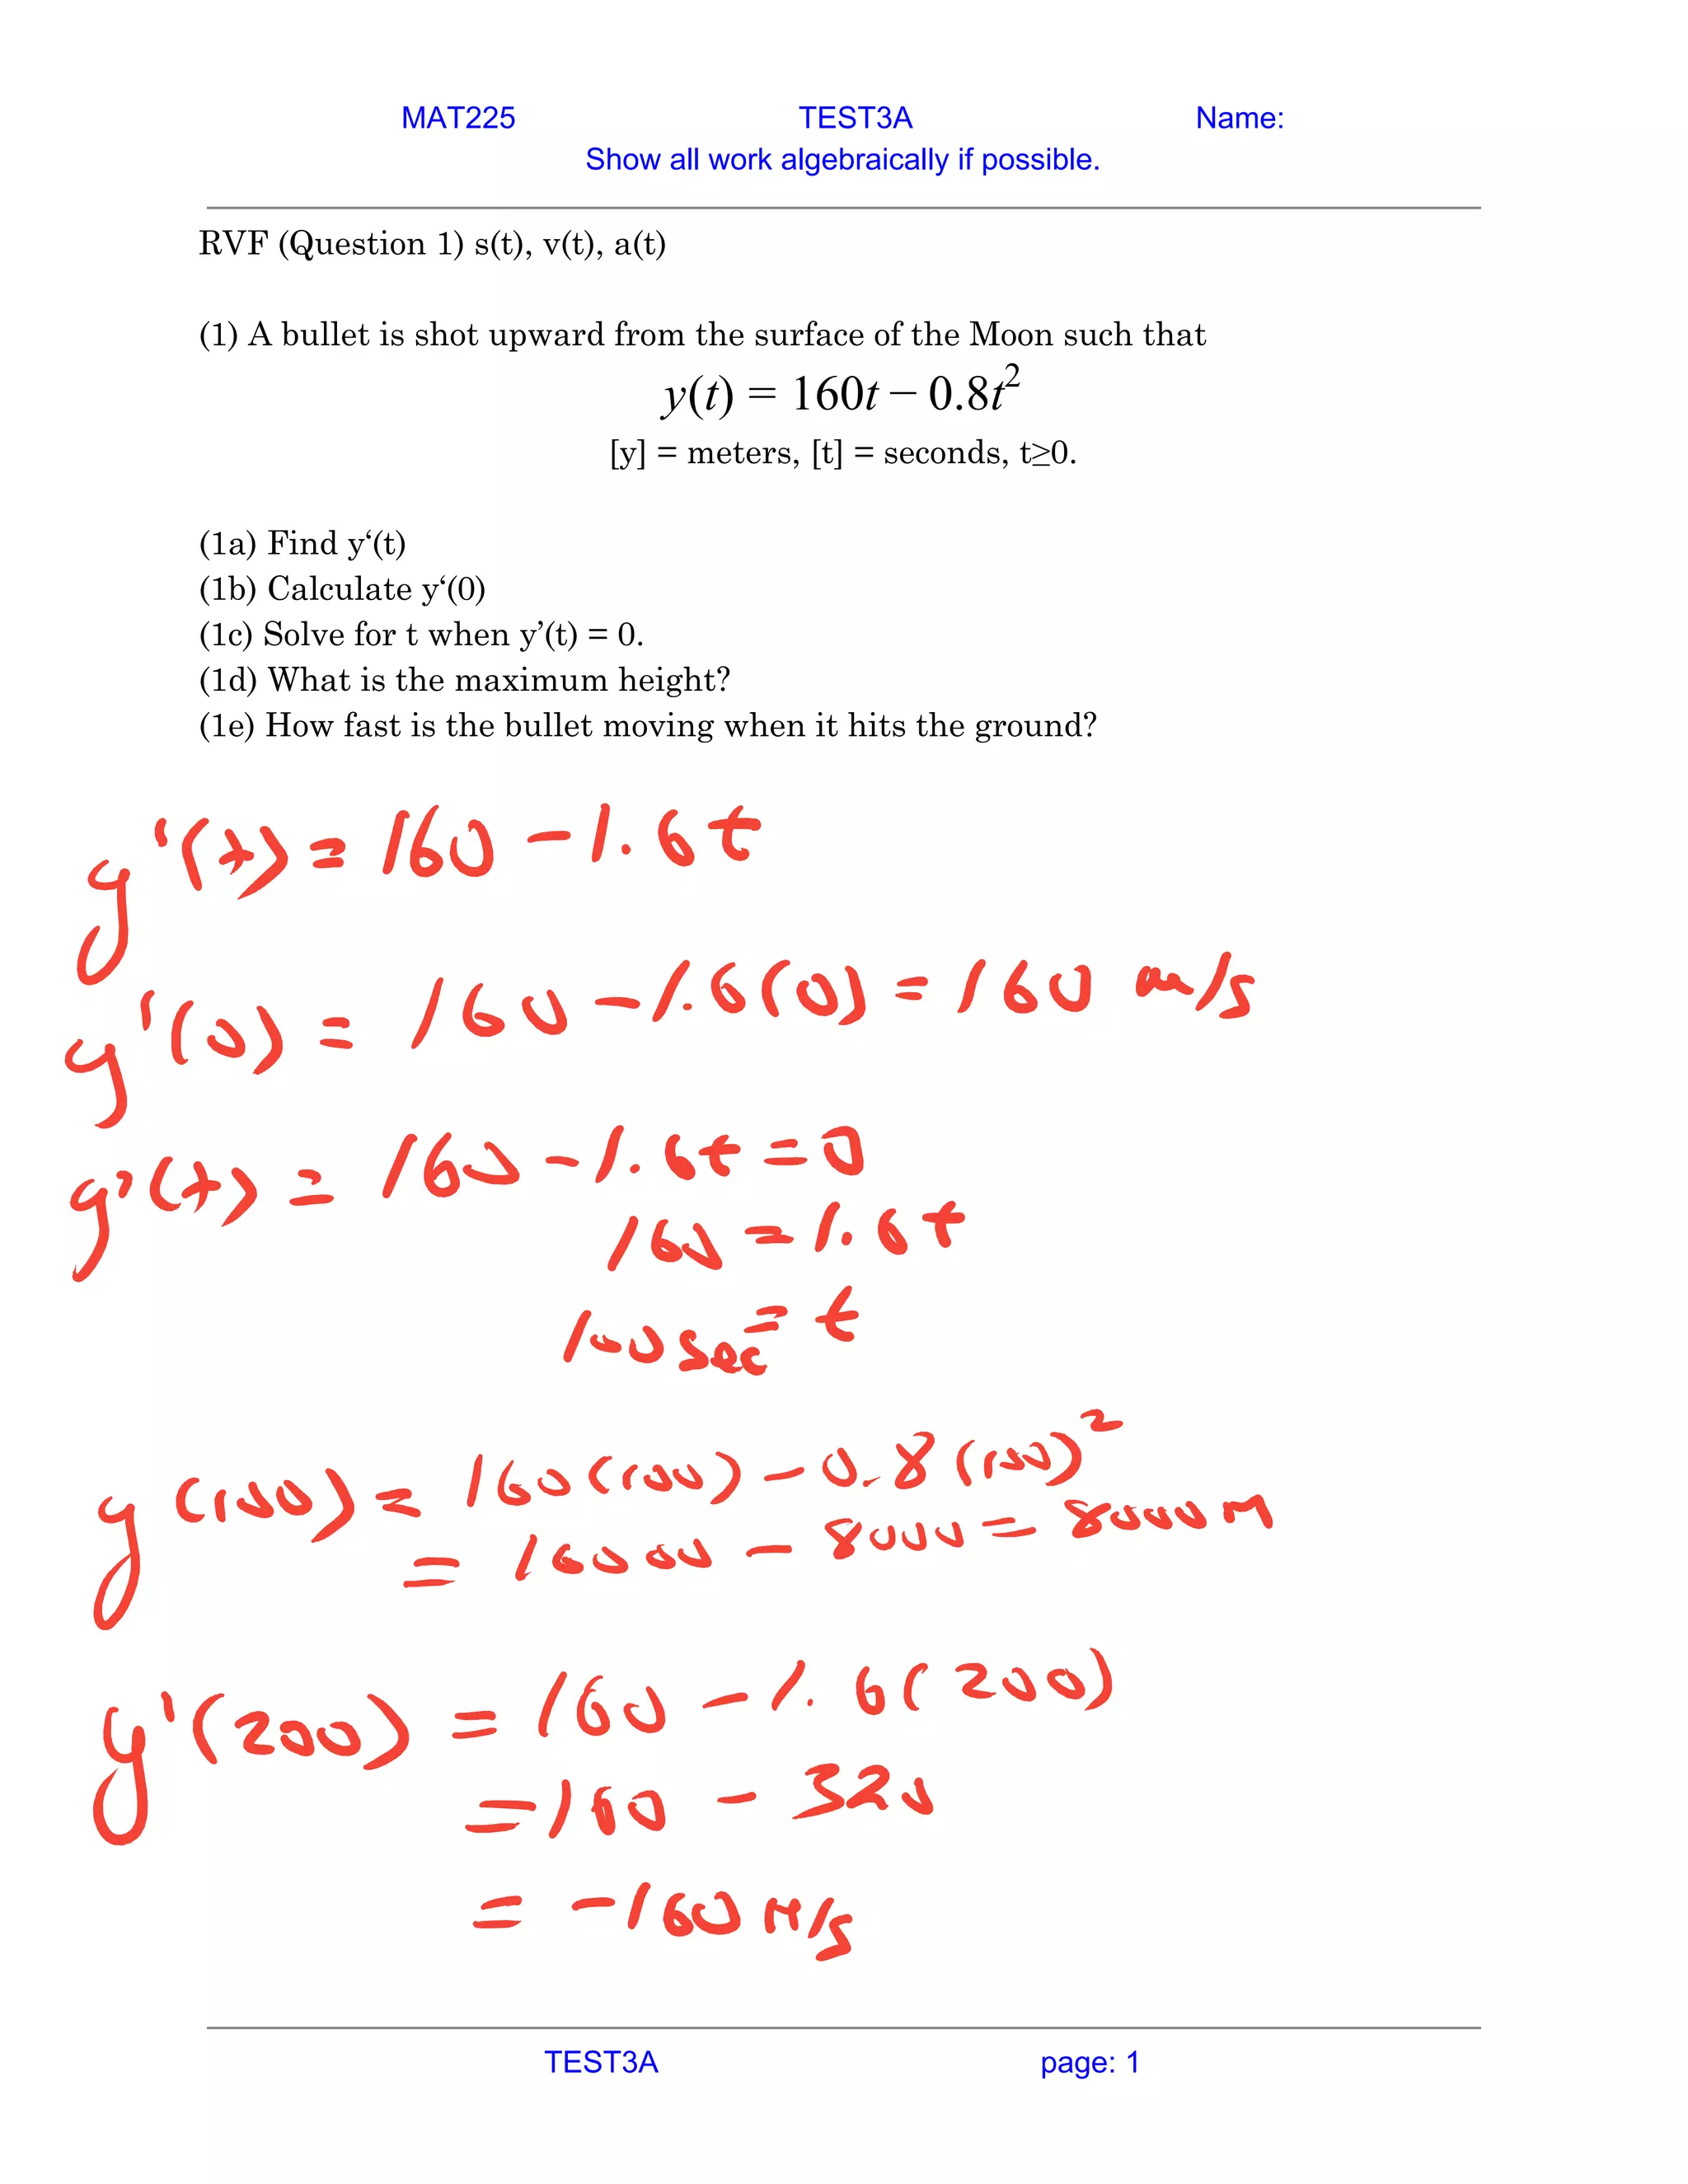 MAT225 TEST3A Name:
Show all work algebraically if possible.
RVF (Question 1) s(t), v(t), a(t)
(1) A bullet is shot upward from the surface of the Moon such that
y(t) = 160t − 0.8t²
[y] = meters, [t] = seconds, t≥0.
(1a) Find y‘(t)
(1b) Calculate y‘(0)
(1c) Solve for t when y’(t) = 0.
(1d) What is the maximum height?
(1e) How fast is the bullet moving when it hits the ground?
y'(t) = 160 - 1.6t
y'(0) = 160 - 1.6(0) = 160 m/s
y'(t) = 160 - 1.6t = 0
160 = 1.6t
100 sec = t
y(100) = 160(100) - 0.8(100)²
= 16000 - 8000 = 8000 M
y'(200) = 160 - 1.6(200)
= 160 - 320
= -160 M/s
TEST3A page: 1